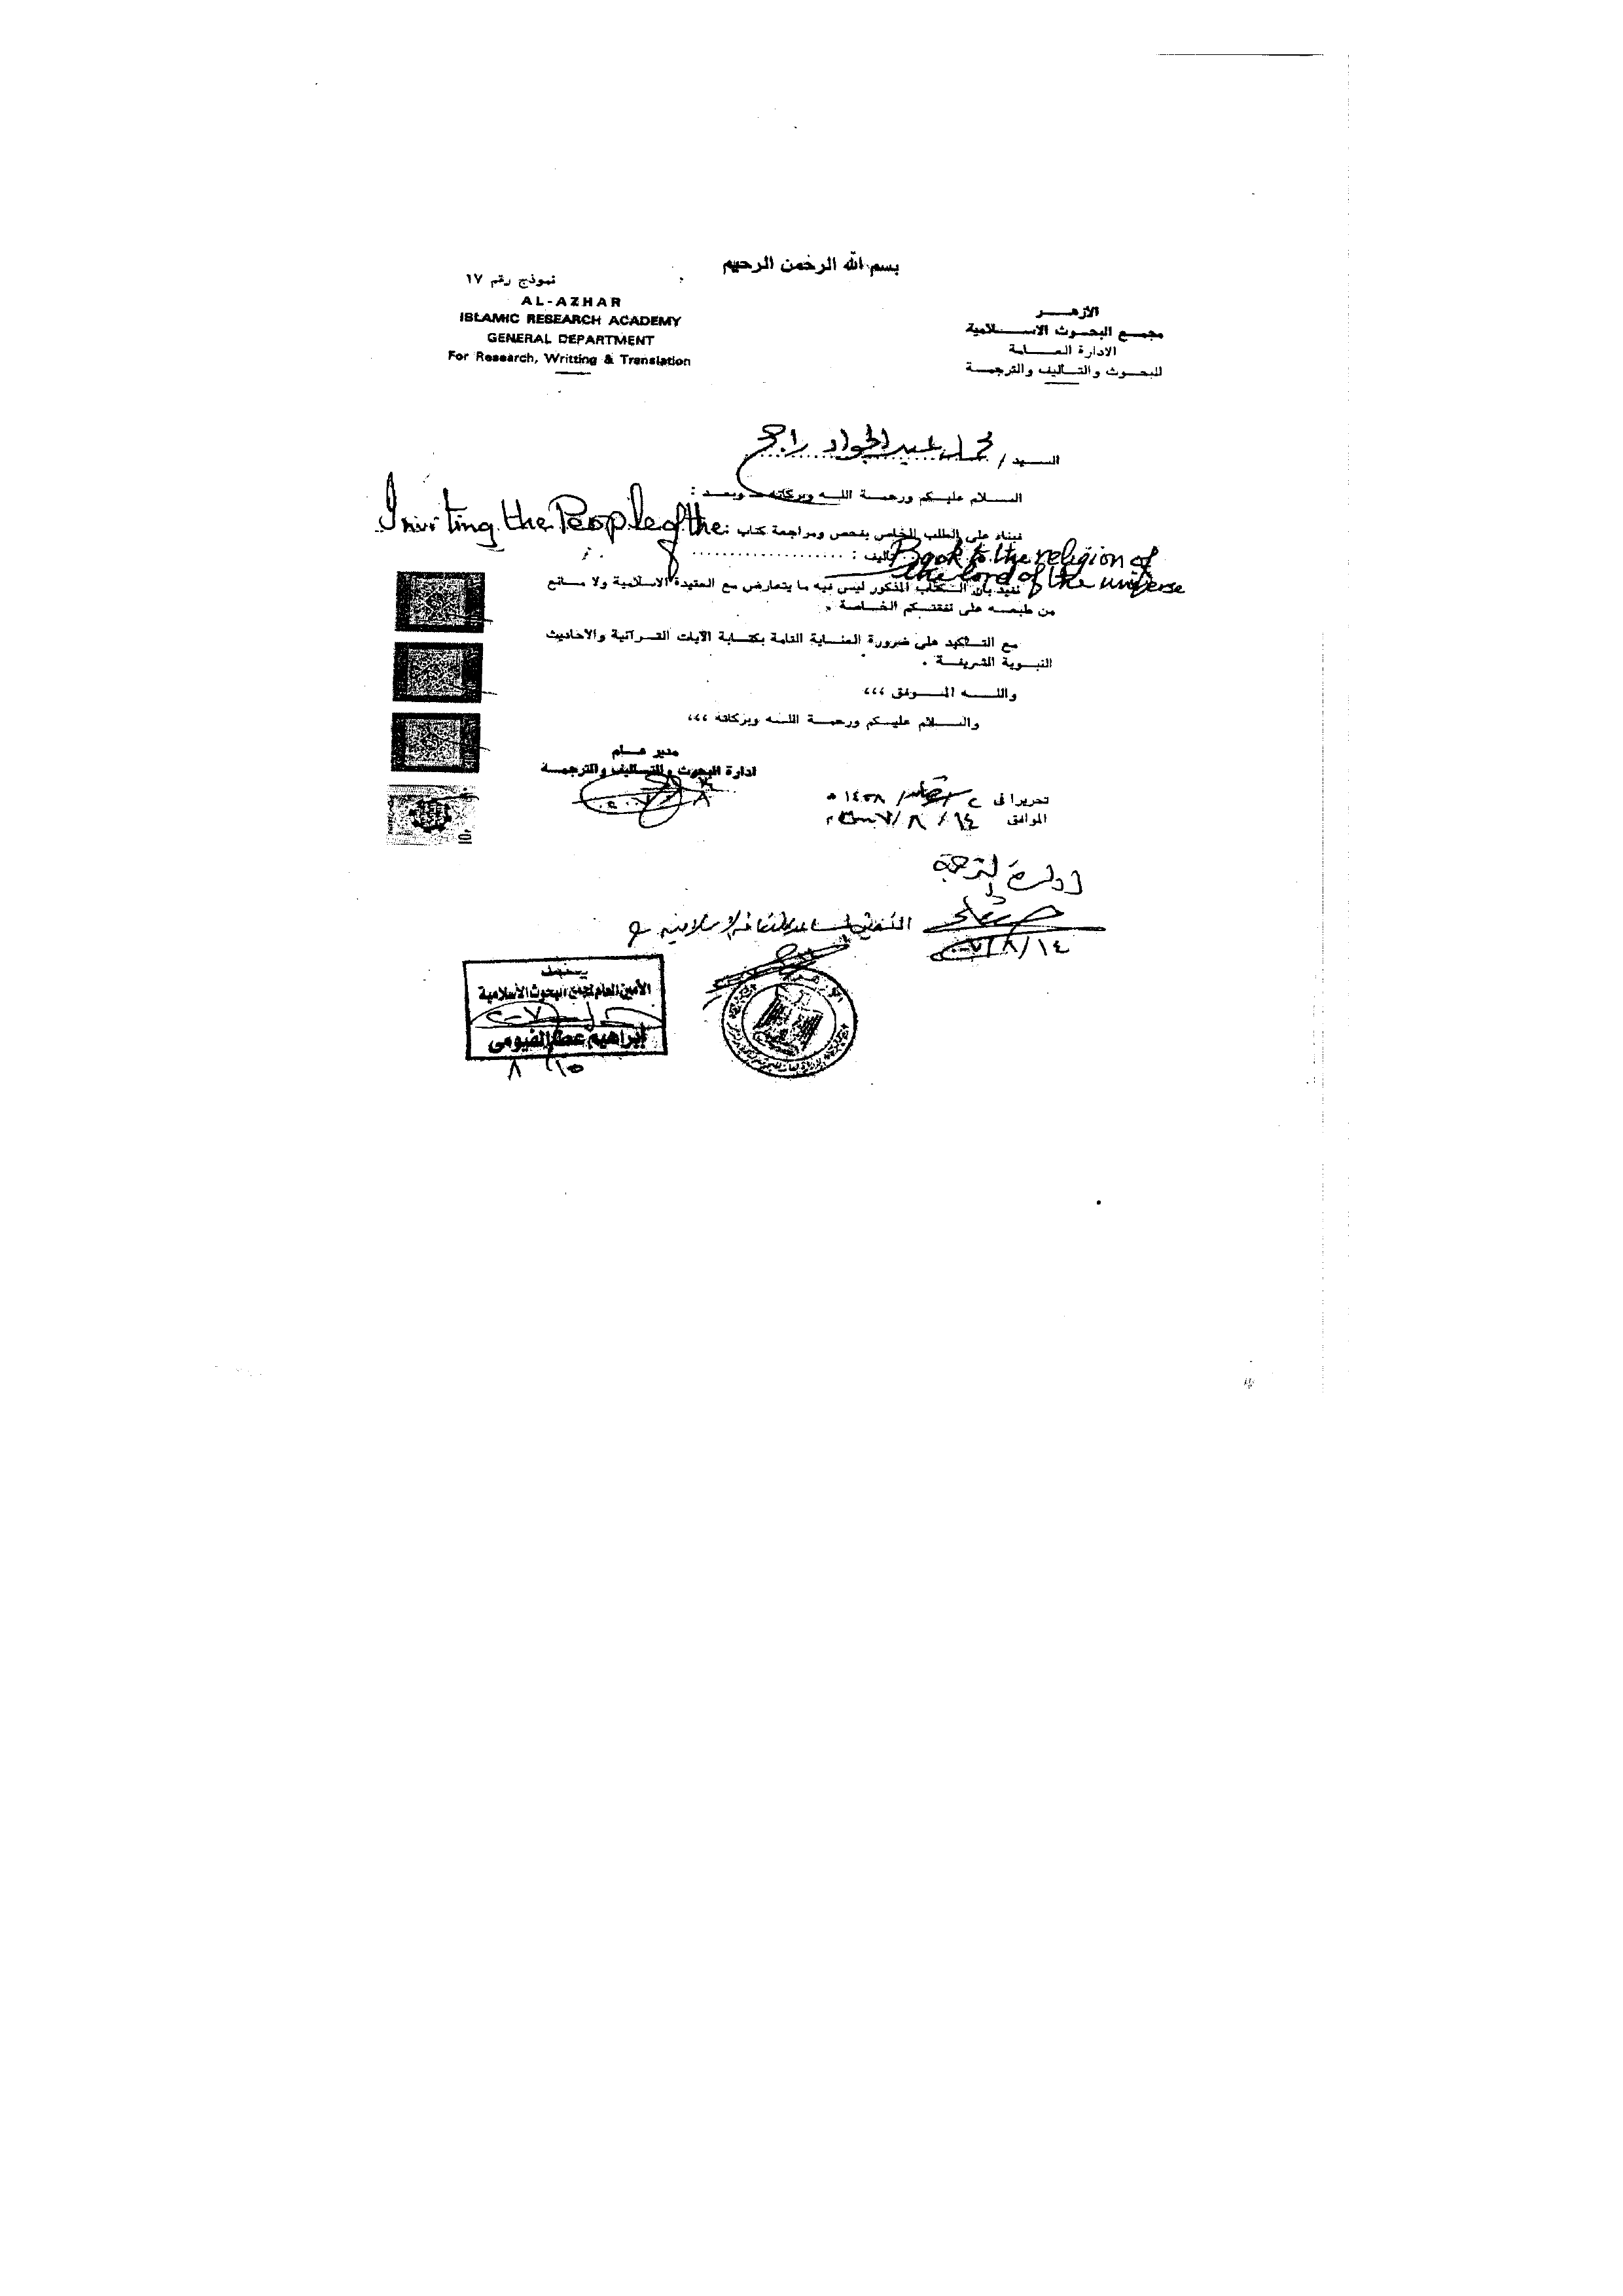 بسم الله الرحمن الرحيم
نموذج رقم ١٧
AL-AZHAR
ISLAMIC RESEARCH ACADEMY
GENERAL DEPARTMENT
For Research, Writting & Translation
الازهـــــر
مجمـع البحـوث الاســـلامية
الادارة العـــامة
للبحـوث والتــأليف والترجمـة
الســيد / محمد عبد الجواد راجح
الســلام عليـكم ورحمـة اللـه وبركاته ـ وبعـد :
فبناء على الطلب الخاص بفحص ومراجعة كتاب : Inviting the People of the
تأليف : Book to the religion of
the lord of the universe
نفيد بأن الـكتاب المذكور ليس فيه ما يتعارض مع العقيدة الاسلامية ولا مـانع
من طبعـه على نفقتـكم الخـاصة .
مع التـأكيد على ضرورة العنـاية التامة بكتـابة الآيات القـرآنية والاحاديث
النبـوية الشريفـة .
واللـــه المـــوفق ،،،
والســـلام عليـكم ورحمـة اللـه وبركاته ،،،
مدير عـــام
ادارة البحوث والتــأليف والترجمـة
تحريرا فى ٢ / شعبان / ١٤٢٨ هـ
الموافق ١٤ / ٨ / ٢٠٠٧ م
إدارة الترجمة
٢٠٠٧/٨/١٤
يعتمد
الأمين العام لمجمع البحوث الأسلامية
٢٠٠٧
إبراهيم عطا الفيومى
٨ / ١٥